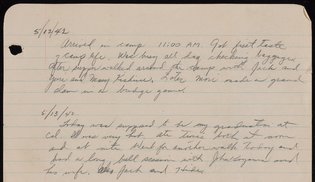 5/12/42
Arrived in camp 11:00 AM. Got first taste
of camp life. Was busy all day checking baggage
After supper walked around the camp with Jack and
and Mary . Later Mori made a grand
slam in a bridge game
5/13/42
Today was supposed to be my graduation at
Cal. It was very hot. ate twice both noon
and at nite. Went for another walk today and
had a long, bull session with and
his wife. Also Jack and